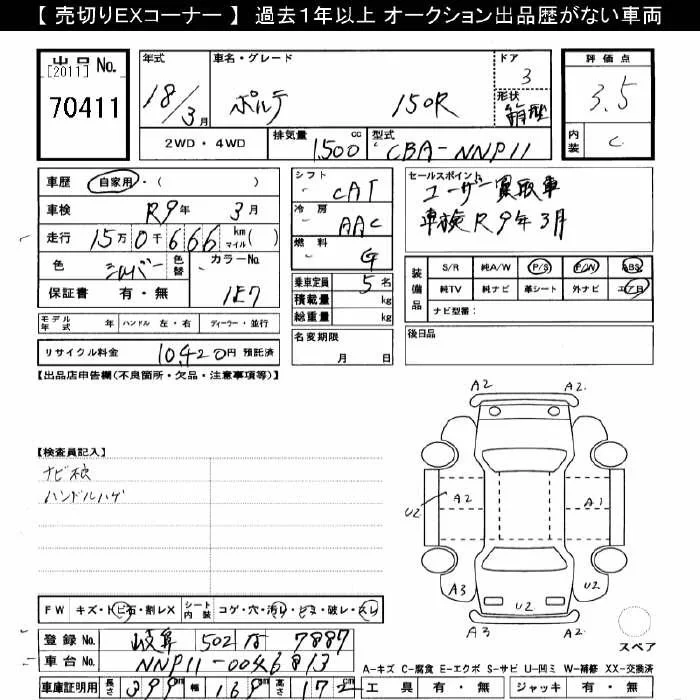 【 売切りEXコーナー 】 過去1年以上 オークション出品歴がない車両
出品 No.
[2011]
70411
年式 車名・グレード ドア
18/3月 ポルテ 150R 3
形状 箱型
評価点
3.5
内装 C
2WD・4WD 排気量 1,500 cc 型式 CBA-NNP11
車歴 自家用・( )
車検 R9年 3月
走行 15万0千666 km マイル( )
色 シルバー 色替 カラーNo. 1E7
保証書 有・無
シフト CAT
冷房 AAC
燃料 G
乗車定員 5名
積載量 kg
総重量 kg
セールスポイント
ユーザー買取車
車検R9年3月
装備品 S/R 純A/W P/S P/W ABS
純TV 純ナビ 革シート 外ナビ
ナビ型番:
モデル年式 年 ハンドル 左・右 ディーラー・並行
名変期限 月 日
後日品
リサイクル料金 10,420円 預託済
【出品店申告欄(不良箇所・欠品・注意事項等)】
【検査員記入】
ハンドルハゲ
A2 A2
U2 A2 A1
A3 U2
A3 A2
スペア
FW キズ・トビ石・割レX シート内装 コゲ・穴・汚レ・シミ・破レ・スレ
登録No. 岐阜 502 7887
車台No. NNP11-0046813
A-キズ C-腐食 E-エクボ S-サビ U-凹ミ W-補修 XX-交換済
車庫証明用 長さ 399cm 幅 169cm 高さ 172 工具 有・無 ジャッキ 有・無